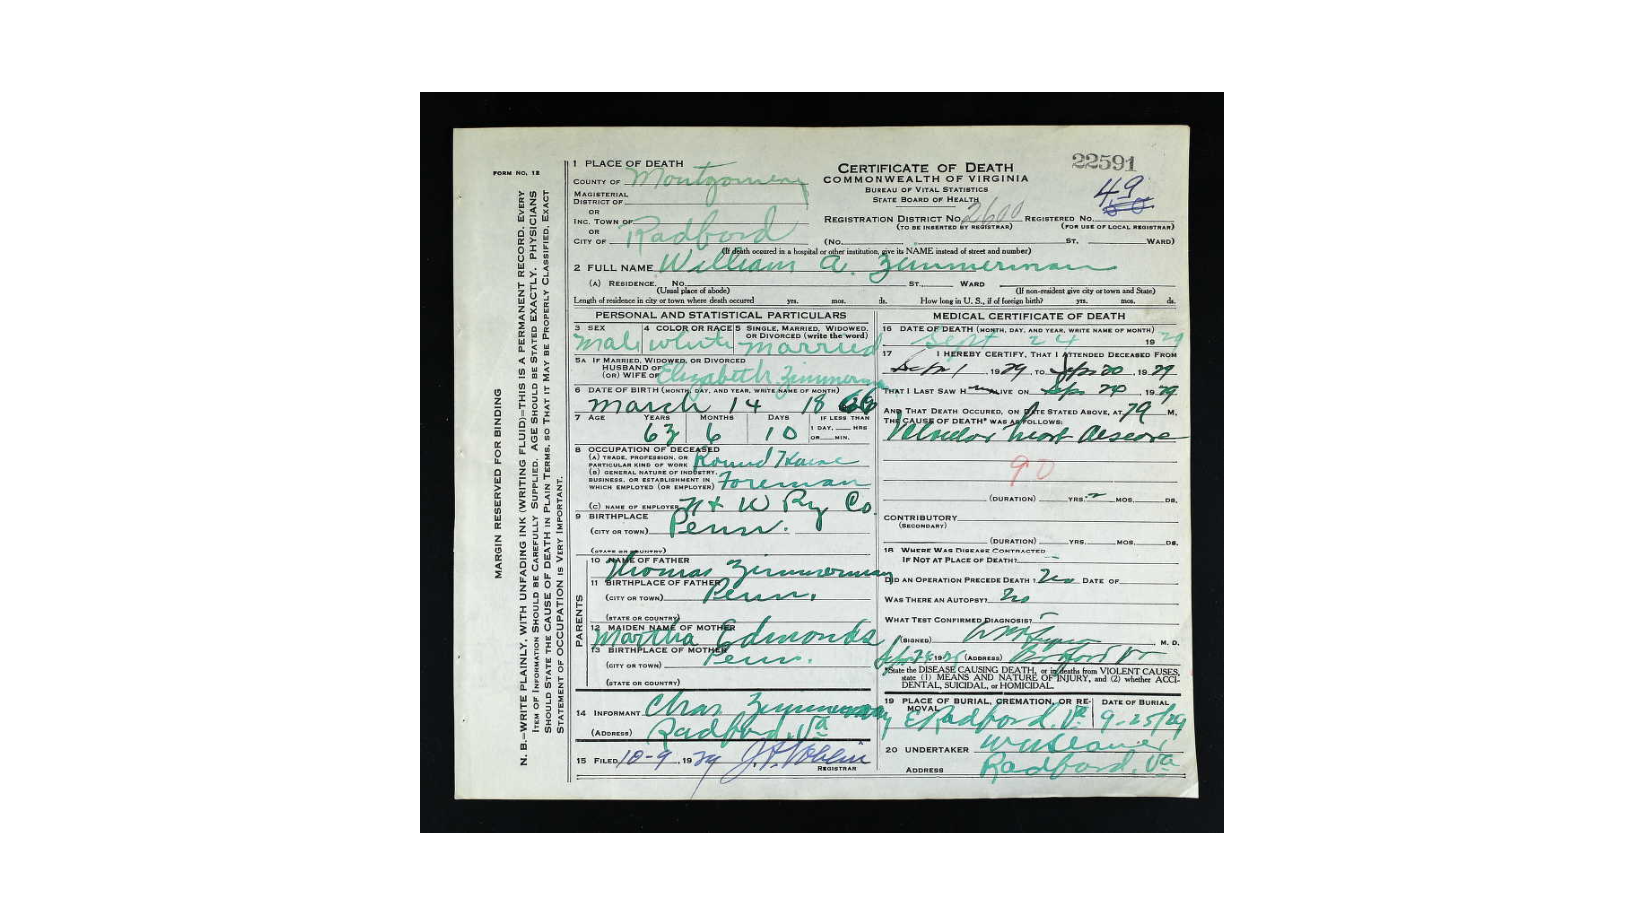 FORM NO. 12
MARGIN RESERVED FOR BINDING
N. B.—WRITE PLAINLY, WITH UNFADING INK (WRITING FLUID)—THIS IS A PERMANENT RECORD. EVERY
ITEM OF INFORMATION SHOULD BE CAREFULLY SUPPLIED. AGE SHOULD BE STATED EXACTLY. PHYSICIANS
SHOULD STATE THE CAUSE OF DEATH IN PLAIN TERMS, SO THAT IT MAY BE PROPERLY CLASSIFIED. EXACT
STATEMENT OF OCCUPATION IS VERY IMPORTANT.
1 PLACE OF DEATH
COUNTY OF Montgomery
MAGISTERIAL
DISTRICT OF
OR
INC. TOWN OF
OR
CITY OF Radford
CERTIFICATE OF DEATH
COMMONWEALTH OF VIRGINIA
BUREAU OF VITAL STATISTICS
STATE BOARD OF HEALTH
22591
49
REGISTRATION DISTRICT No. 2600 REGISTERED No.
(TO BE INSERTED BY REGISTRAR) (FOR USE OF LOCAL REGISTRAR)
(No. ST. WARD)
(If death occured in a hospital or other institution, give its NAME instead of street and number)
2 FULL NAME William A. Zimmerman
(A) RESIDENCE. No. ST. WARD
(Usual place of abode) (If non-resident give city or town and State)
Length of residence in city or town where death occured yrs. mos. ds. How long in U. S., if of foreign birth? yrs. mos. ds.
PERSONAL AND STATISTICAL PARTICULARS
3 SEX 4 COLOR OR RACE 5 SINGLE, MARRIED, WIDOWED,
OR DIVORCED (write the word)
Male white married
5A IF MARRIED, WIDOWED, OR DIVORCED
HUSBAND OF
(OR) WIFE OF Elizabeth Zimmerman
6 DATE OF BIRTH (MONTH, DAY, AND YEAR, WRITE NAME OF MONTH)
March 14 1866
7 AGE YEARS MONTHS DAYS IF LESS THAN
1 DAY, HRS
OR MIN.
63 6 10
8 OCCUPATION OF DECEASED
(A) TRADE, PROFESSION, OR
PARTICULAR KIND OF WORK Round House
(B) GENERAL NATURE OF INDUSTRY,
BUSINESS, OR ESTABLISHMENT IN
WHICH EMPLOYED (OR EMPLOYER) Foreman
(C) NAME OF EMPLOYER N & W Ry Co.
9 BIRTHPLACE
(CITY OR TOWN) Penn.
(STATE OR COUNTRY)
PARENTS
10 NAME OF FATHER
Thomas Zimmerman
11 BIRTHPLACE OF FATHER
(CITY OR TOWN) Penn.
(STATE OR COUNTRY)
12 MAIDEN NAME OF MOTHER
Martha Edmonds
13 BIRTHPLACE OF MOTHER
(CITY OR TOWN) Penn.
(STATE OR COUNTRY)
14 INFORMANT Chas Zimmerman
(ADDRESS) Radford, Va
15 FILED 10-9, 1929
REGISTRAR
MEDICAL CERTIFICATE OF DEATH
16 DATE OF DEATH (MONTH, DAY, AND YEAR, WRITE NAME OF MONTH)
Sept 24 1929
17 I HEREBY CERTIFY, THAT I ATTENDED DECEASED FROM
Sep 1, 1929, TO Sep 20, 1929
THAT I LAST SAW H ALIVE ON Sep 20, 1929
AND THAT DEATH OCCURED, ON DATE STATED ABOVE, AT M.
THE CAUSE OF DEATH* WAS AS FOLLOWS:
Valvular heart disease
90
(DURATION) YRS. MOS. DS.
CONTRIBUTORY
(SECONDARY)
(DURATION) YRS. MOS. DS.
18 WHERE WAS DISEASE CONTRACTED
IF NOT AT PLACE OF DEATH?
DID AN OPERATION PRECEDE DEATH? No DATE OF
WAS THERE AN AUTOPSY? No
WHAT TEST CONFIRMED DIAGNOSIS?
(SIGNED) M. D.
(ADDRESS) Radford Va
*State the DISEASE CAUSING DEATH, or in deaths from VIOLENT CAUSES,
state (1) MEANS AND NATURE OF INJURY, and (2) whether ACCI-
DENTAL, SUICIDAL, or HOMICIDAL.
19 PLACE OF BURIAL, CREMATION, OR RE-
MOVAL DATE OF BURIAL
E Radford, Va 9-25/29
20 UNDERTAKER
ADDRESS Radford, Va